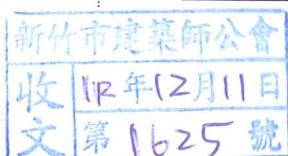 新竹市建築師公會
收文
112年12月11日
第 1625 號